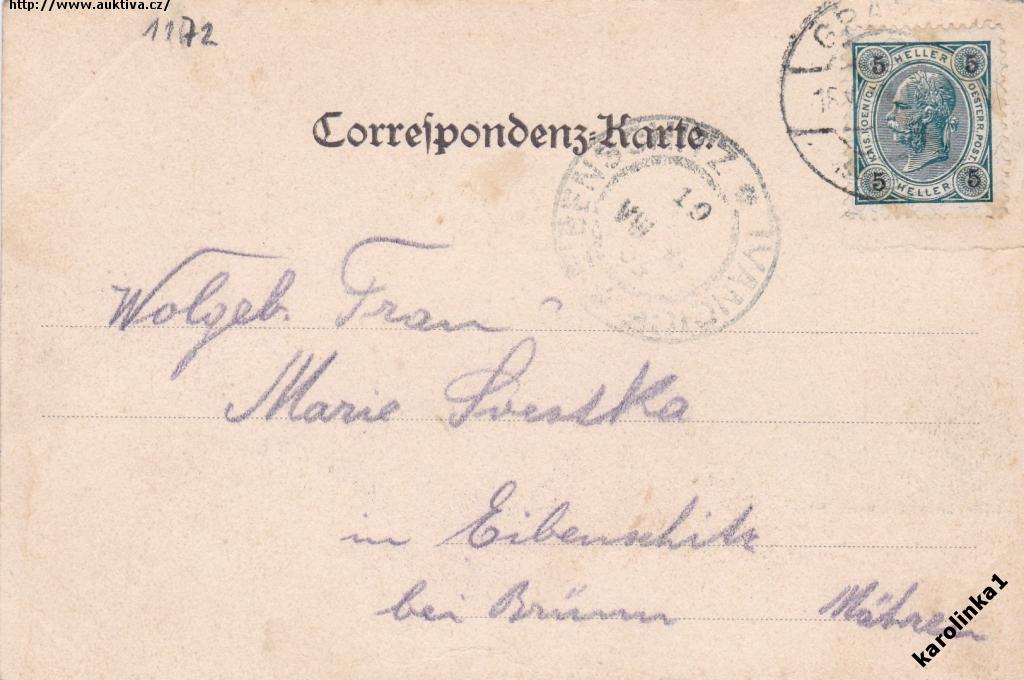 http://www.auktiva.cz/
1172
Correspondenz-Karte.
5 HELLER 5
KAIS. KOENIGL. OESTERR. POST.
5 HELLER 5
EIBENSCHITZ * IVANČICE
19
Wolgeb. Frau
Marie Svestka
in Eibenschitz
bei Brünn Mähren
karolinka1